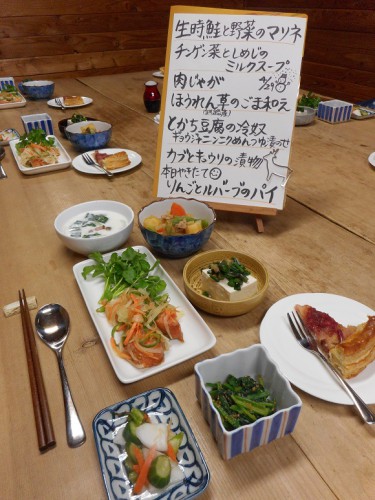 生時鮭と野菜のマリネ
チンゲン菜としめじの
ミルクスープ
肉じゃが
4/29
ほうれん草のごま和え
とかち豆腐の冷奴
キョウジャニンニクめんつゆ漬のせ
カブとキュウリの漬物
本日やきたて
りんごとルバーブのパイ